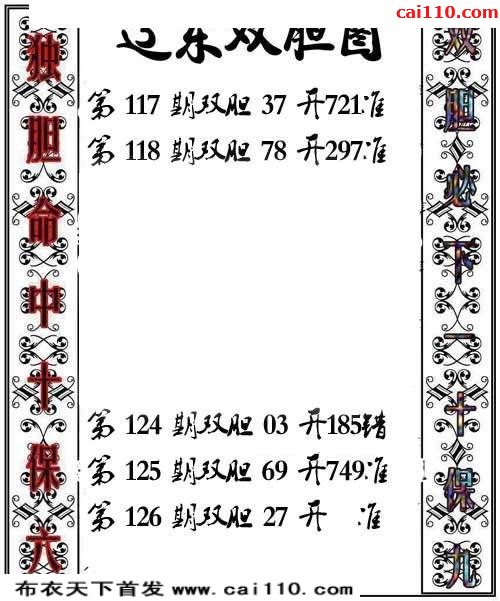 cai110.com
东双胆图
独胆命中十保六
第 117 期双胆 37 开721准
第 118 期双胆 78 开297准
第 124 期双胆 03 开185错
第 125 期双胆 69 开749准
第 126 期双胆 27 开 准
双胆必下一十保九
布衣天下首发 www.cai110.com